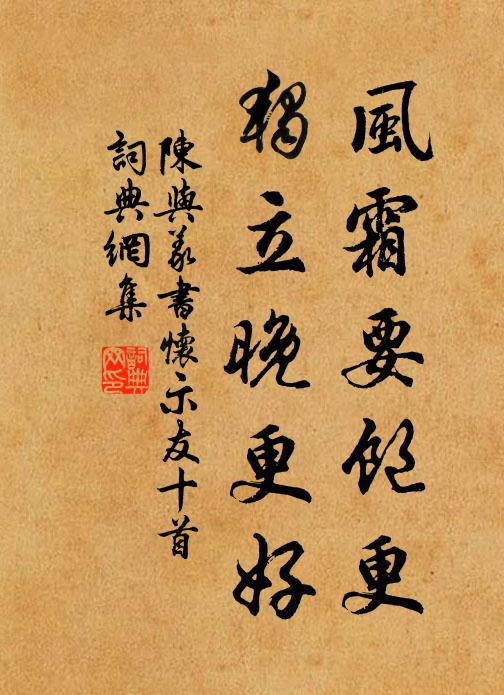 風霜要飽更
獨立晚更好
陳與義書懷示友十首
詞典網集
詞典網印